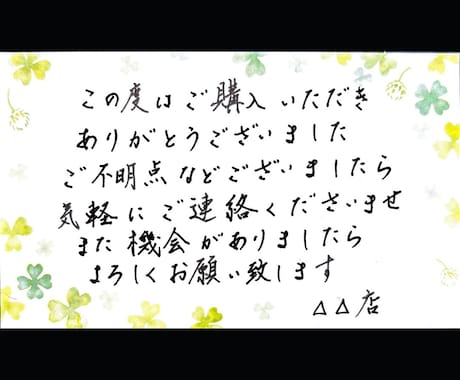 この度はご購入いただき
ありがとうございました
ご不明点などございましたら
気軽にご連絡くださいませ
また機会がありましたら
よろしくお願い致します
△△店